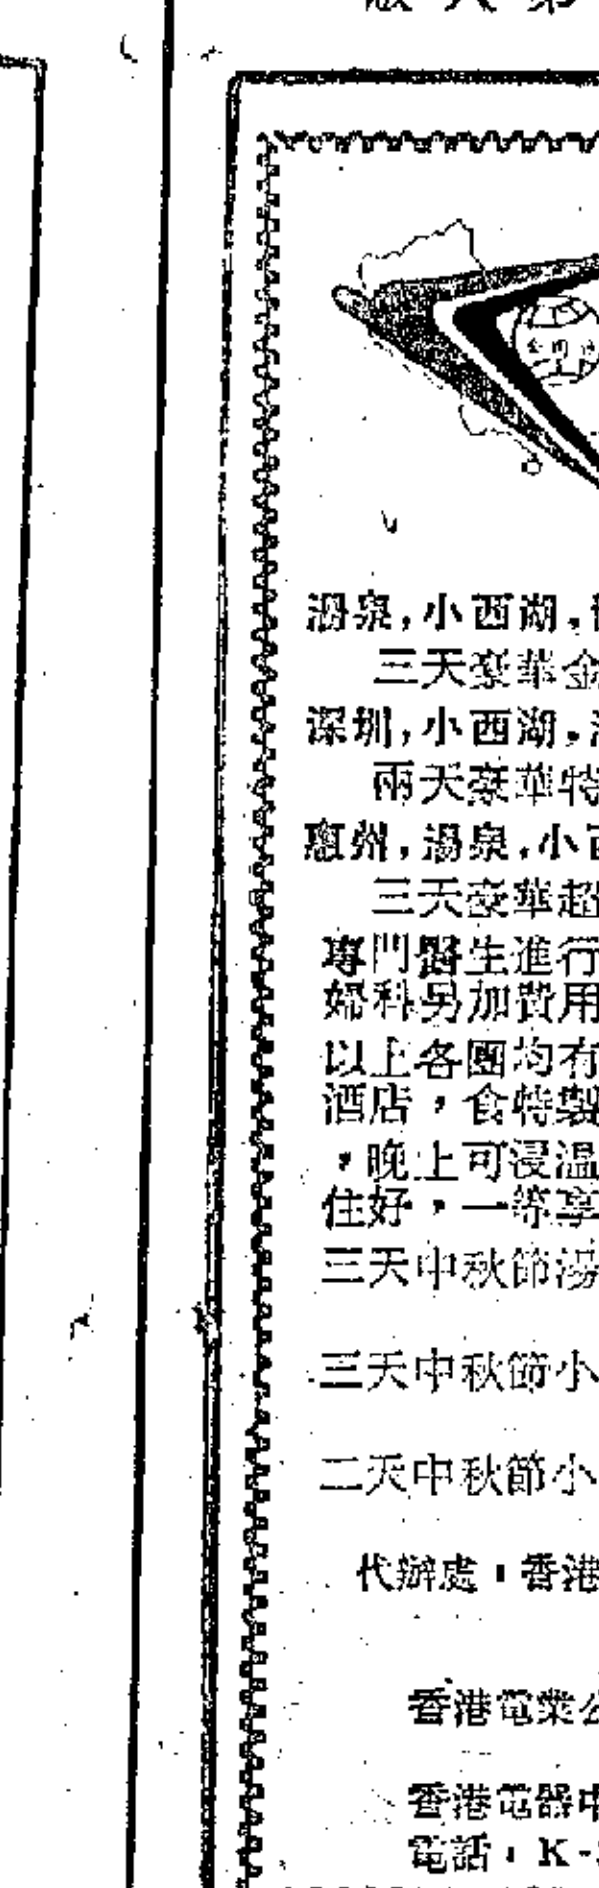 湯泉,小西湖,
三天豪華金
深圳,小西湖,
兩天豪華特
惠州,湯泉,小西
三天豪華超
專門醫生進行
婦科另加費用
以上各團均有
酒店,食特製
,晚上可浸溫
住好,一等享
三天中秋節湯
三天中秋節小
二天中秋節小
代辦處:香港
香港電業公
香港電器中
電話:K-